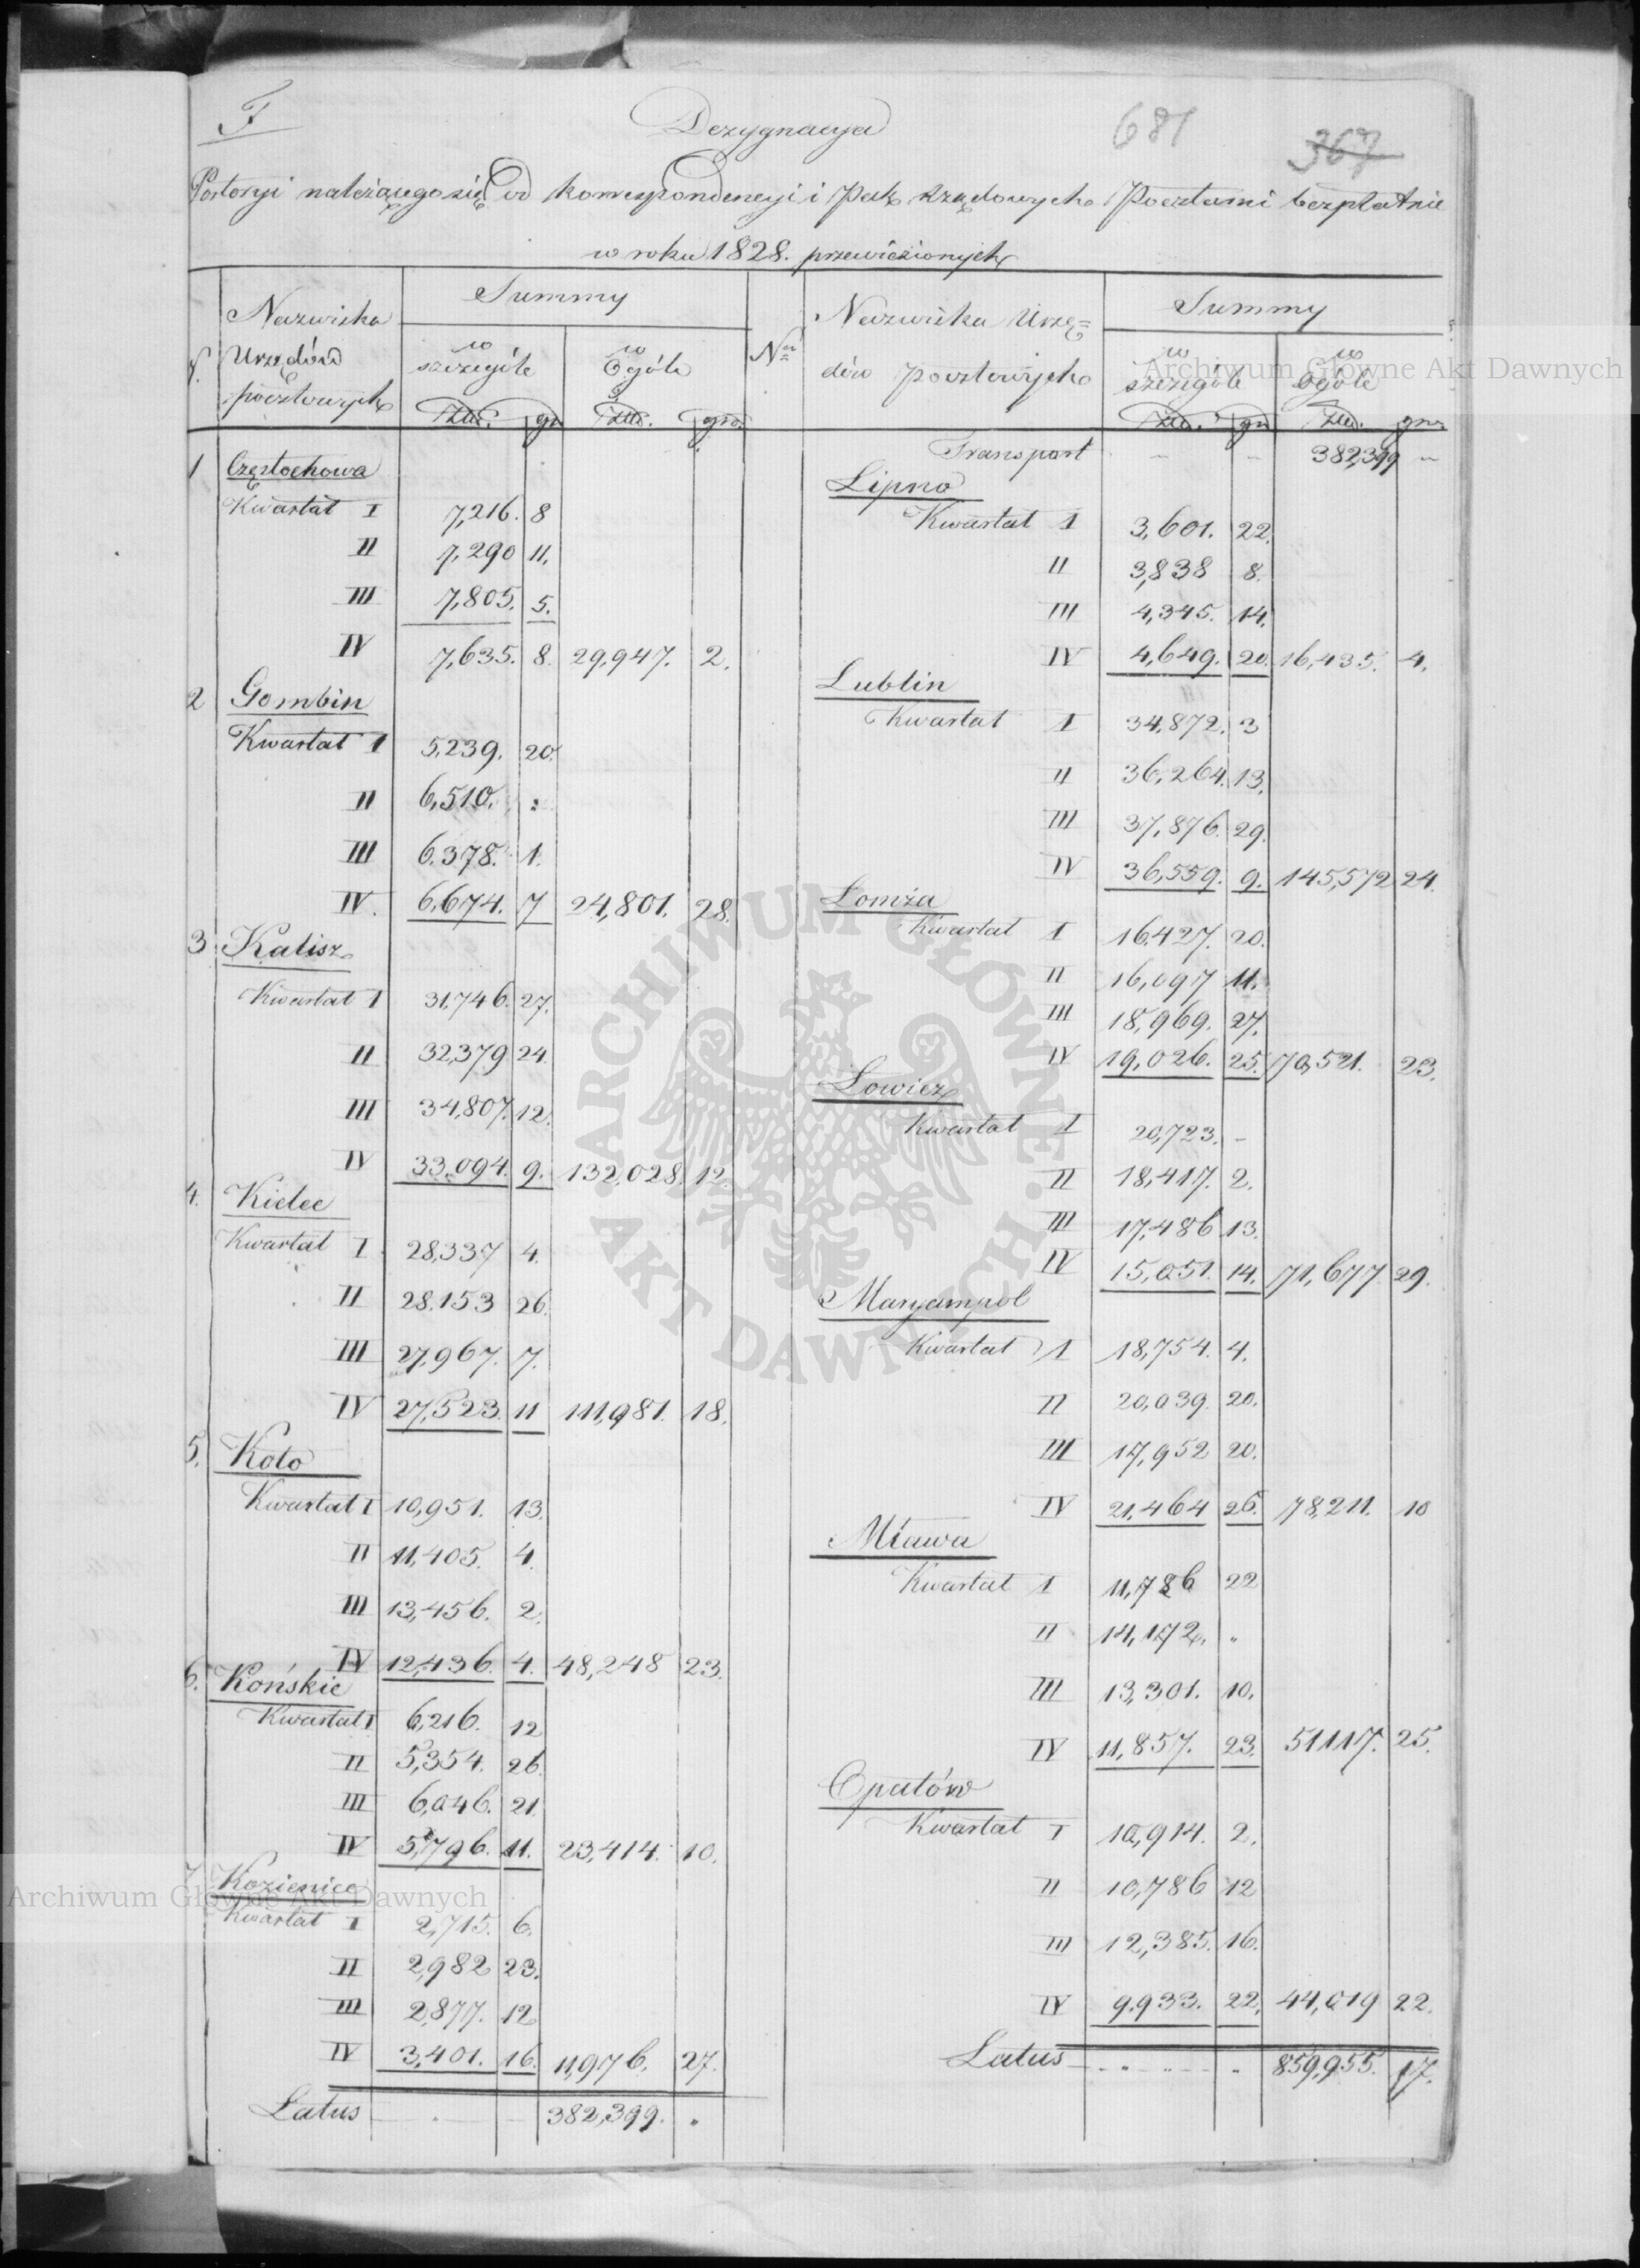 F
Dezygnacya
681
367
Portoryi należącego się od korrespondencyi i Pak Rządowych Pocztami bezpłatnie
w roku 1828. przewiezionych
Nazwiska Urzędów pocztowych
Summy
w szczególe
w Ogóle
Złł. gr. Złł. gro.
1 Częstochowa
Kwartał I 7,216. 8
II 7,290 11.
III 7,805. 5.
IV 7,635. 8. 29,947. 2.
2 Gombin
Kwartał I 5,239. 20.
II 6,510. :
III 6,378. 1.
IV. 6,674. 7 24,801. 28.
3 Kalisz
Kwartał I 31,746. 27.
II 32,379 24
III 34,807. 12.
IV 33,094. 9. 132,028. 12.
4. Kielce
Kwartał I 28,337 4.
II 28,153 26.
III 27,967. 7.
IV 27,523. 11 111,981. 18.
5. Koło
Kwartał I 10,951. 13.
II 11,405. 4.
III 13,456. 2.
IV 12,436. 4. 48,248 23.
6. Końskie
Kwartał I 6,216. 12
II 5,354. 26.
III 6,046. 21.
IV 5,796. 11. 23,414. 10.
7 Kozienice
Kwartał I 2,715. 6.
II 2,982 23.
III 2,877. 12
IV 3,401. 16. 11,976. 27.
Latus 382,399. "
Nr
Nazwiska Urzę=
dów pocztowych
Summy
w szczególe
w Ogóle
Złł. gr. Złł. gr.
Transport 382,399 —
Lipno
Kwartał I 3,601. 22.
II 3,838 8.
III 4,345. 14.
IV 4,649. 20. 16,435. 4.
Lublin
Kwartał I 34,872. 3
II 36,264. 13.
III 37,876. 29.
IV 36,559. 9. 145,572 24.
Łomża
Kwartał I 16,427. 20.
II 16,097 11.
III 18,969. 27.
IV 19,026. 25. 70,521. 23.
Łowicz
Kwartał I 20,723. -
II 18,417. 2.
III 17,486 13.
IV 15,051. 14. 71,677 29.
Maryampol
Kwartał I 18,754. 4.
II 20,039. 20.
III 17,952 20.
IV 21,464 26. 78,211. 10
Mława
Kwartał I 11,786 22
II 14,172. "
III 13,301. 10.
IV 11,857. 23. 51117. 25.
Opatów
Kwartał I 10,914. 2.
II 10,786 12
III 12,385. 16.
IV 9,933. 22. 44,019 22.
Latus 859,955. 17.
Archiwum Główne Akt Dawnych
ARCHIWUM GŁÓWNE AKT DAWNYCH
Archiwum Główne Akt Dawnych